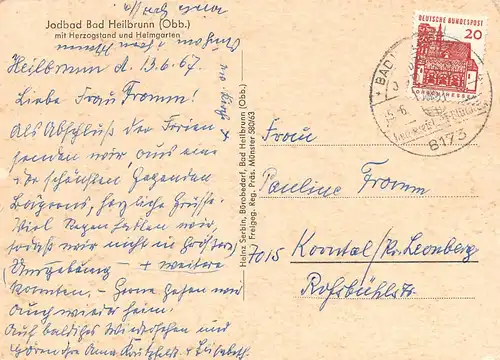 Jodbad Bad Heilbrunn (Obb.)
mit Herzogstand und Heimgarten
Heilbrunn d. 13.6.67.
Liebe Frau Fromm!
Als Abschluß der Ferien
senden wir, aus eine
der schönsten Gegenden
Bayerns, herzliche Grüsse.
Viel Regen hatten wir,
sodaß wir nicht in größere
Umgebung — + weitere
konnten. — Gerne gehen wir
auch wieder heim.
Auf baldiges Wiedersehen und
Heinz Serbin, Bürobedarf, Bad Heilbrunn (Obb.)
Freigeg. Reg. Präs. Münster 580/63
DEUTSCHE BUNDESPOST
20
LORSCH/HESSEN
BAD
8173
Frau
Pauline Fromm
7015 Korntal/Kr. Leonberg